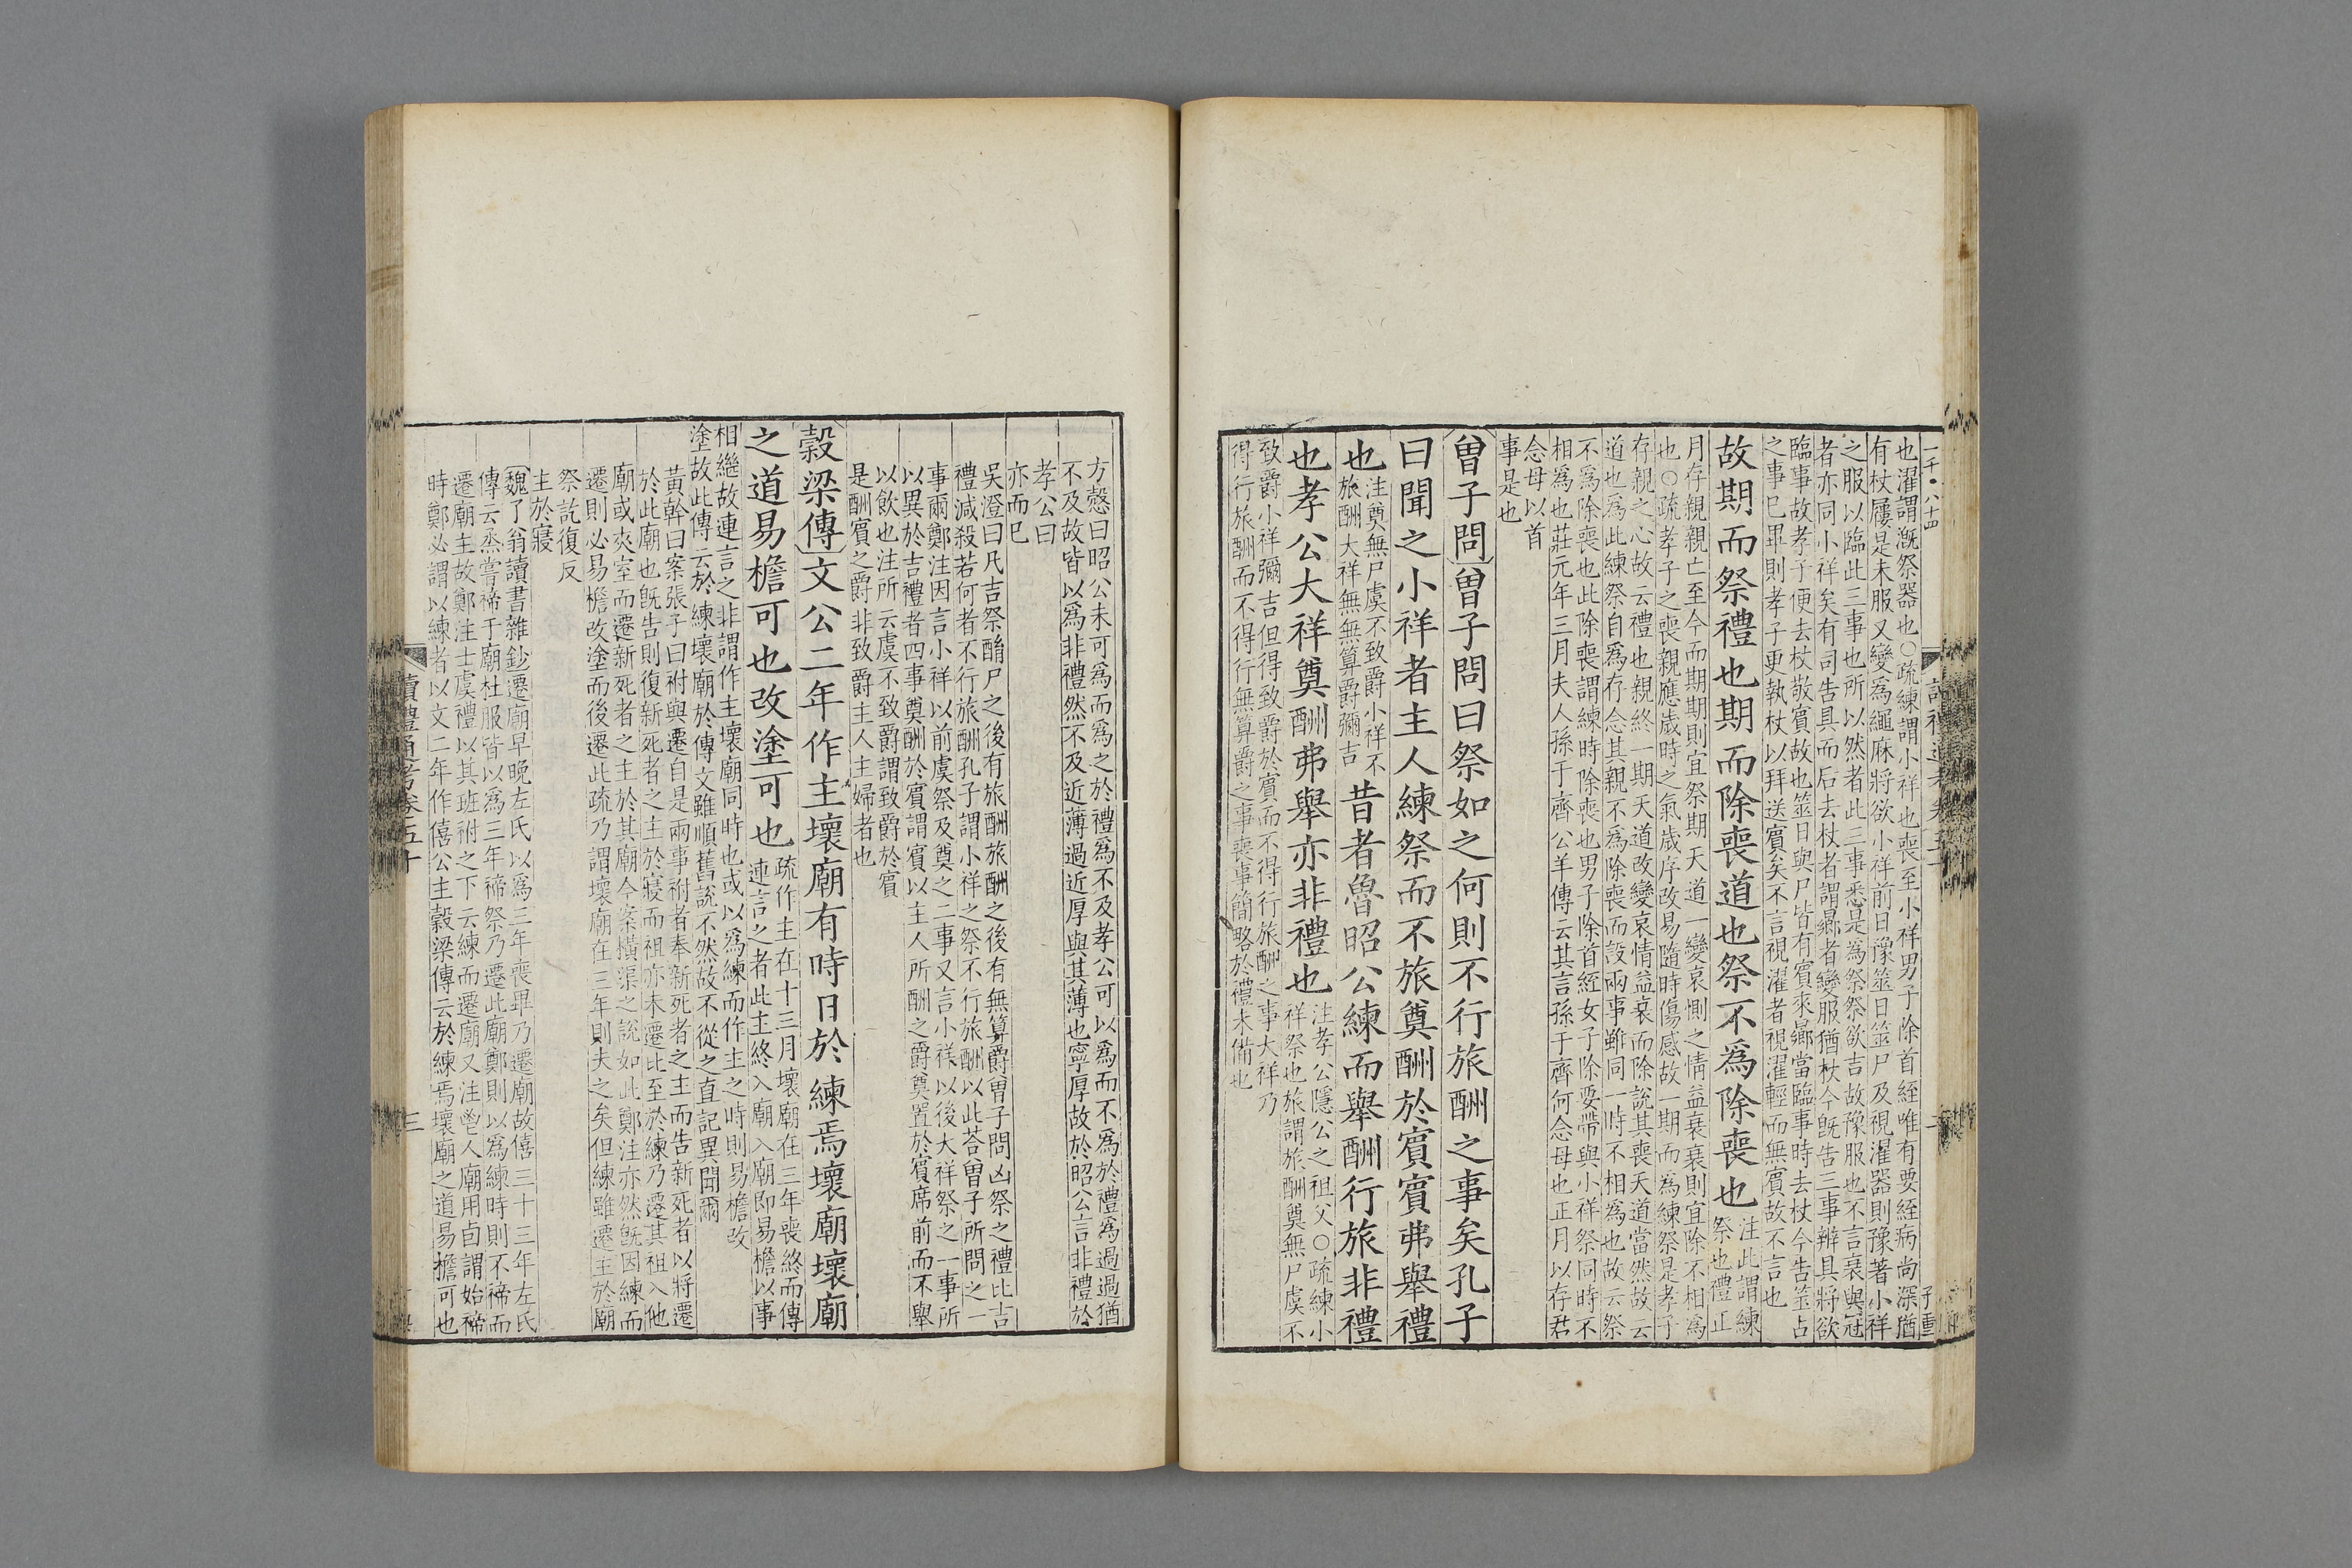 一千八十四
也濯謂漑祭器也○疏練謂小祥也喪至小祥男子除首絰唯有要絰病尚深猶
有杖屨是未服又變爲繩麻將欲小祥前日豫筮日筮尸及視濯器則豫著小祥
之服以臨此三事也所以然者此三事悉是爲祭祭欲吉故豫服也不言衰與冠
者亦同小祥矣有司告具而后去杖者謂曏者變服猶杖今旣告三事辦具將欲
臨事故孝子便去杖敬賓故也筮日與尸皆有賓來曏當臨事時去杖今告筮占
之事巳畢則孝子更執杖以拜送賓矣不言視濯者視濯輕而無賓故不言也
故期而祭禮也期而除喪道也祭不爲除喪也注此謂練
祭也禮正
月存親親亡至今而期期則宜祭期天道一變哀惻之情益衰衰則宜除不相爲
也○疏孝子之喪親應歲時之氣歲序改易隨時傷感故一期而爲練祭是孝子
存親之心故云禮也親終一期天道改變哀情益衰而除說其喪天道當然故云
道也爲此練祭自爲存念其親不爲除喪而設兩事雖同一時不相爲也故云祭
不爲除喪也此除喪謂練時除喪也男子除首絰女子除要帶與小祥祭同時不
相爲也莊元年三月夫人孫于齊公羊傳云其言孫于齊何念母也正月以存君
念母以首
事是也
曾子問曾子問曰祭如之何則不行旅酬之事矣孔子
曰聞之小祥者主人練祭而不旅奠酬於賓賓弗舉禮
也注奠無尸虞不致爵小祥不
旅酬大祥無無算爵彌吉昔者魯昭公練而舉酬行旅非禮
也孝公大祥奠酬弗舉亦非禮也注孝公隱公之祖父○疏練小
祥祭也旅謂旅酬奠無尸虞不
致爵小祥彌吉但得致爵於賓而不得行旅酬之事大祥乃
得行旅酬而不得行無算爵之事喪事簡略於禮未備也
方慤曰昭公未可爲而爲之於禮爲不及孝公可以爲而不爲於禮爲過過猶
不及故皆以爲非禮然不及近薄過近厚與其薄也寧厚故於昭公言非禮於
孝公曰
亦而巳
吳澄曰凡吉祭酳尸之後有旅酬旅酬之後有無算爵曾子問凶祭之禮比吉
禮減殺若何者不行旅酬孔子謂小祥之祭不行旅酬以此荅曾子所問之一
事爾鄭注因言小祥以前虞祭及奠之二事又言小祥以後大祥祭之一事所
以異於吉禮者四事奠酬於賓謂賓以主人所酬之爵奠置於賓席前而不舉
以飲也注所云虞不致爵謂致爵於賓
是酬賓之爵非致爵主人主婦者也
穀梁傳文公二年作主壞廟有時日於練焉壞廟壞廟
之道易檐可也改塗可也疏作主在十三月壞廟在三年喪終而傳
連言之者此主終入廟入廟即易檐以事
相繼故連言之非謂作主壞廟同時也或以爲練而作主之時則易檐改
塗故此傳云於練壞廟於傳文雖順舊說不然故不從之直記異聞爾
黃幹曰案張子曰祔與遷自是兩事祔者奉新死者之主而告新死者以將遷
於此廟也旣告則復新死者之主於寢而祖亦未遷比至於練乃遷其祖入他
廟或夾室而遷新死者之主於其廟今案橫渠之說如此鄭注亦然旣因練而
遷則必易檐改塗而後遷此疏乃謂壞廟在三年則夫之矣但練雖遷主於廟
祭訖復反
主於寢
魏了翁讀書雜鈔遷廟早晚左氏以爲三年喪畢乃遷廟故僖三十三年左氏
傳云烝嘗禘于廟杜服皆以爲三年禘祭乃遷此廟鄭則以爲練時則不禘而
遷廟主故鄭注士虞禮以其班祔之下云練而遷廟又注鬯人廟用卣謂始禘
時鄭必謂以練者以文二年作僖公主穀梁傳云於練焉壞廟之道易檐可也
讀禮通考卷五十
三